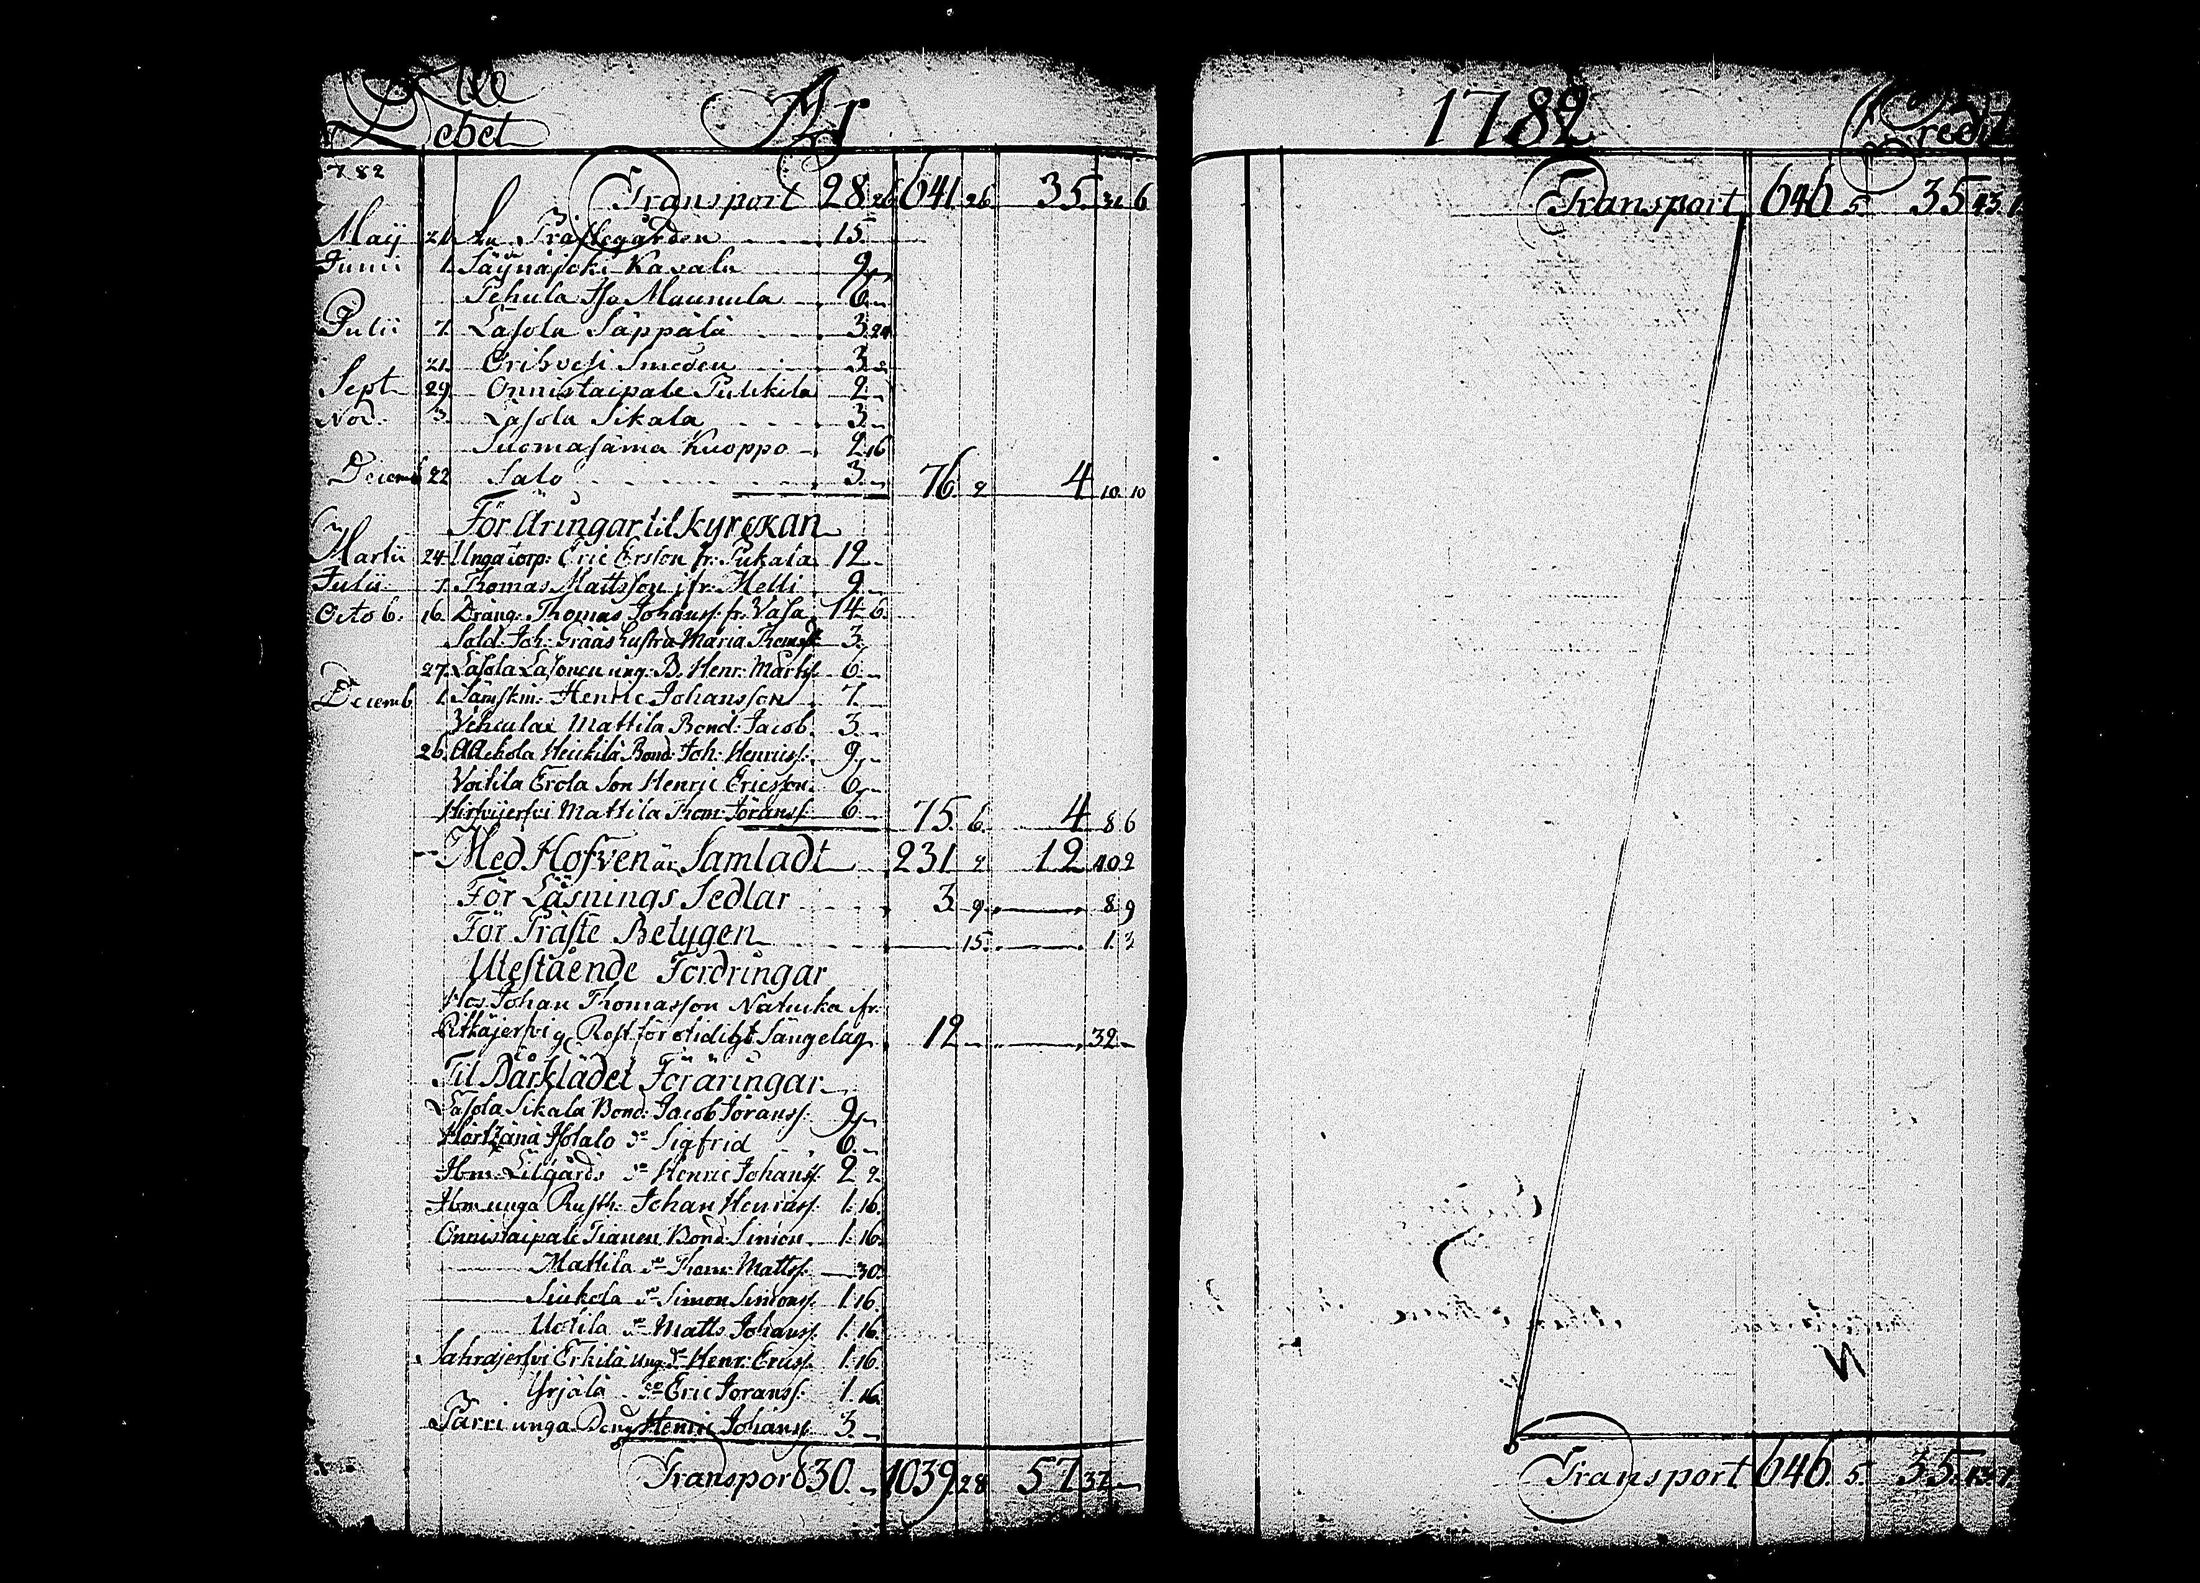 Debet År
1782
Transport 28 26 641 26 35 31 6
Maij 21 Präste gården 15
Junii 1 Säÿnäjoki Kavala 9
Pehula Iso Maunula 6
Julii 7 Lasola Säppälä 3 24
21 Orihvesi Smeden 3
Sept 29 Onnistaipale Pulikila 2
Nov. 3 Lasola Sikala 3
Suomasäma Kuoppo 2 16
Decemb 22 Salo 3 76 2 4 10 10
Föräringar til kyrckan
Martii 24 Unga torp: Eric Ersson fr: Pukala 12
Julii 7 Thomas Mattsson ifr: Melli 9
Octob. 16 Dräng: Thomas Johanss: fr: Vasa 14 6
Sald: Joh: Grääs hustru Maria Thomsdr 3
27 Lasola Lasonen ung: B. Henr: Martss: 6
Decemb 1 Sämskm: Henric Johansson 7
Vehculax Mattila Bond: Jacob 3
26 Alickola Heickilä Bond: Joh: Henricss: 9
Voitila Erola Son Henric Ericsson 6
Hirfvijerfvi Mattila Thom: Göranss: 6 75 6 4 8 6
Med Hofven är Samladt 231 2 12 40 2
För Läsnings Sedlar 3 9 8 9
För Präste Betygen 15 1 3
Utestående Fordringar
Hos Johan Thomasson Natucka ifr:
Pitkäjerfvi Rest för otidigt Sängelag 12 32
Til Bårklädet Föräringar
Lasola Sikala Bond: Jacob Jöranss: 9
Hortzänä Isotalo do Sigfrid 6
Ibm: Lilgårds do Henric Johanss: 2 2
Ibm unga Rusth: Johan Henricss: 1 16
Onnistaipale Tianen Bond: Simon 1 16
Mattila do Thom: Mattss: 30
Siukola do Simon Simonss: 1 16
Uotila do Matts Johanss: 1 16
Sahrajerfvi Erkilä ung do Henr: Ericss: 1 16
Yrjälä do Eric Joranss: 1 16
Parri unga Bond Henric Johanss: 3
Transport 30 1039 28 57 37
1782 Credit
Transport 646 5 35 43
Transport 646 5 35 43